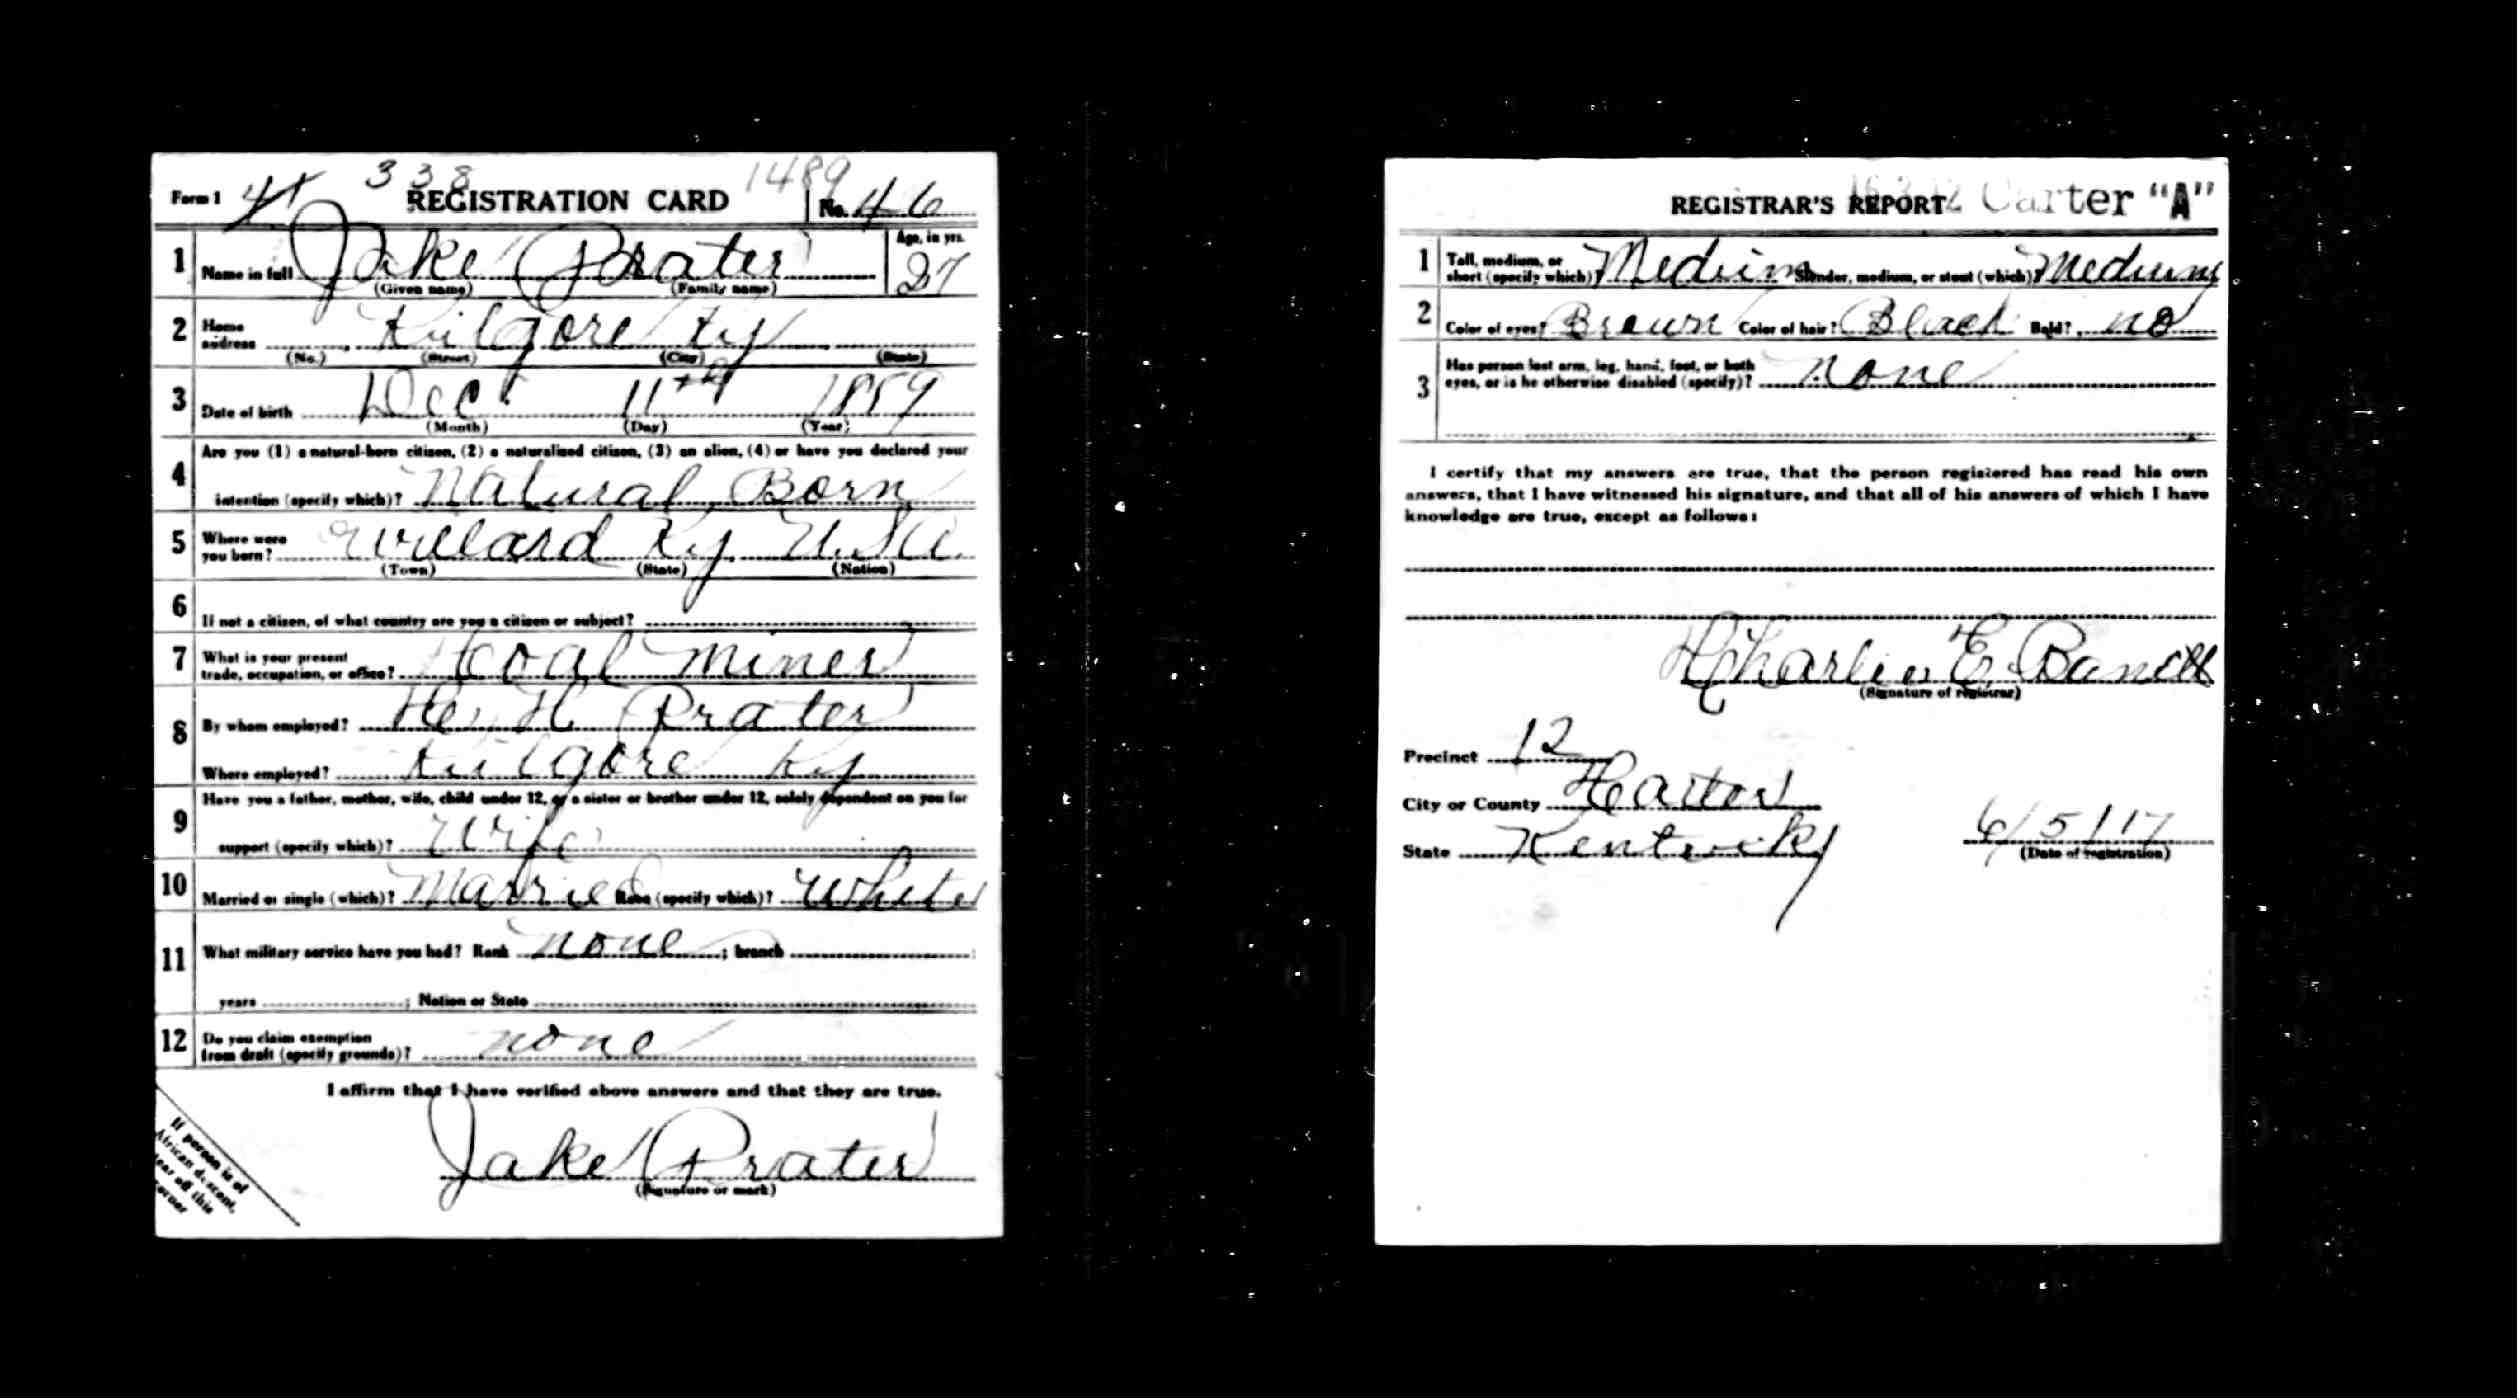 338 1489
Form 1 41 REGISTRATION CARD No. 46
1 Name in full Jake Prater Age, in yrs. 27
(Given name) (Family name)
2 Home address Kilgore Ky
(No.) (Street) (City) (State)
3 Date of birth Dec 11th 1889
(Month) (Day) (Year)
4 Are you (1) a natural-born citizen, (2) a naturalized citizen, (3) an alien, (4) or have you declared your
intention (specify which)? Natural Born
5 Where were you born? Willard Ky U.S.A.
(Town) (State) (Nation)
6 If not a citizen, of what country are you a citizen or subject?
7 What is your present trade, occupation, or office? Coal Miner
8 By whom employed? C. H. Prater
Where employed? Kilgore Ky
9 Have you a father, mother, wife, child under 12, or a sister or brother under 12, solely dependent on you for
support (specify which)? Wife
10 Married or single (which)? Married Race (specify which)? White
11 What military service have you had? Rank none ; branch ;
years ; Nation or State
12 Do you claim exemption from draft (specify grounds)? none
I affirm that I have verified above answers and that they are true.
Jake Prater
(Signature or mark)
If person is of
African descent,
tear off this
corner
REGISTRAR'S REPORT Carter "A"
1 Tall, medium, or short (specify which)? Medium Slender, medium, or stout (which)? Medium
2 Color of eyes? Brown Color of hair? Black Bald? no
3 Has person lost arm, leg, hand, foot, or both
eyes, or is he otherwise disabled (specify)? none
I certify that my answers are true, that the person registered has read his own
answers, that I have witnessed his signature, and that all of his answers of which I have
knowledge are true, except as follows:
Charlie E.
(Signature of registrar)
Precinct 12
City or County Carter
State Kentucky 6/5/17
(Date of registration)